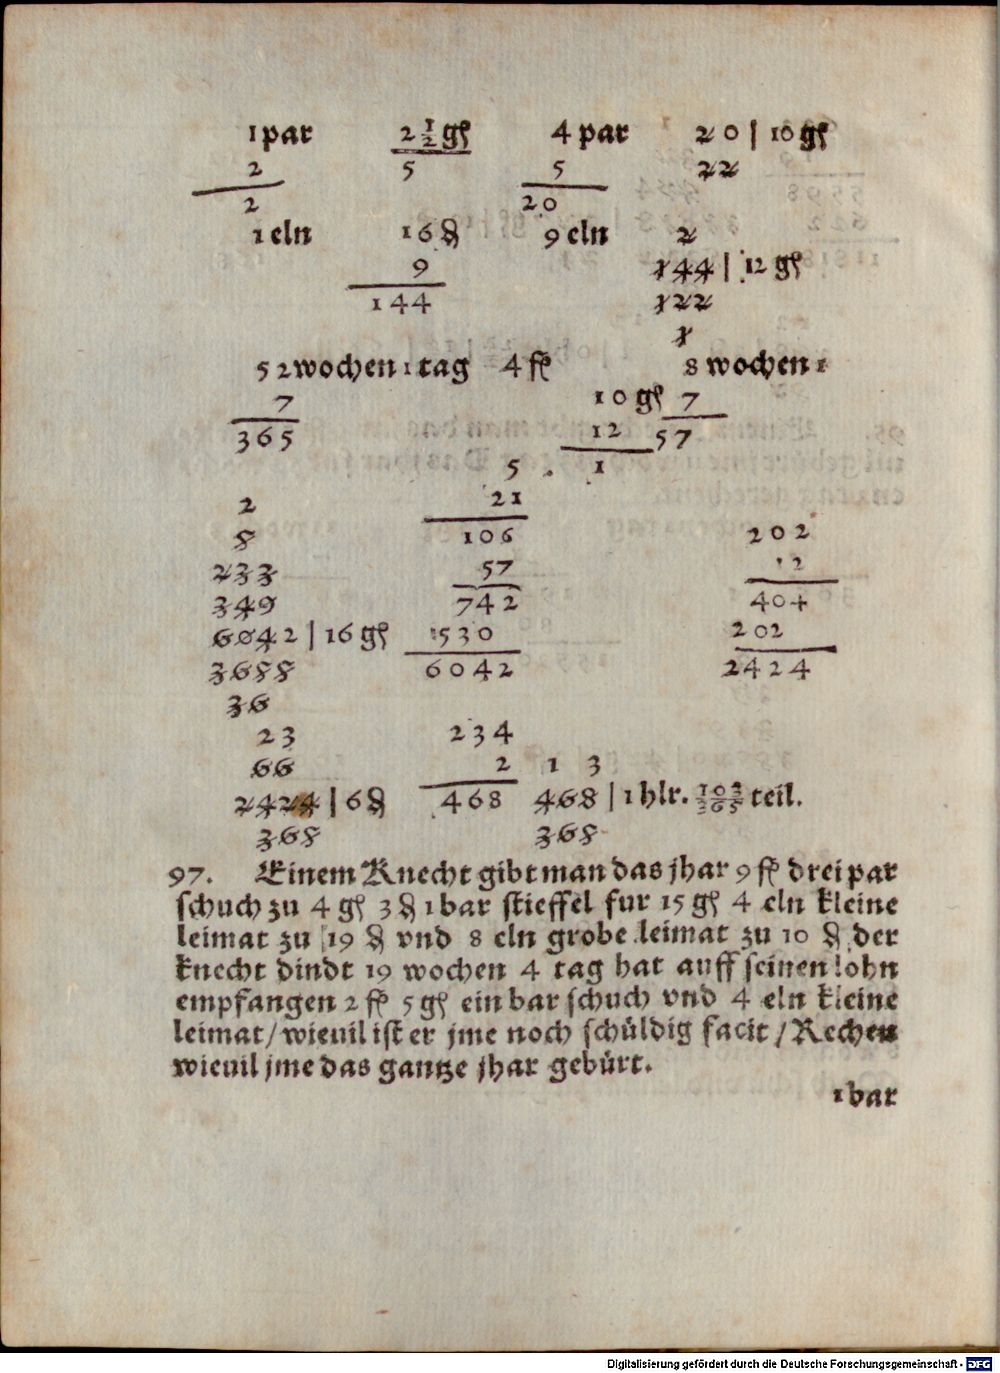 1 par 2 1/2 gſ 4 par 2 0 | 10 gſ
2 5 5 2 2
2 2 0
1 eln 1 6 ₰ 9 eln 2
9 1 4 4 | 12 gſ
1 4 4 1 2 2
1
5 2 wochen 1 tag 4 fl 8 wochen 1
7 1 0 gſ 7
3 6 5 1 2 5 7
5 . 1
2 2 1
8 1 0 6 2 0 2
2 3 3 5 7 1 2
3 4 9 7 4 2 4 0 4
6 0 4 2 | 16 gſ 5 3 0 2 0 2
3 6 8 8 6 0 4 2 2 4 2 4
3 6
2 3 2 3 4
6 6 2 1 3
2 4 2 4 | 6 ₰ 4 6 8 4 6 8 | 1 hlr. 103/365 teil.
3 6 8 3 6 8
97. Einem Knecht gibt man das jhar 9 fl drei par
ſchuch zu 4 gſ 3 ₰ 1 bar ſtieffel fur 15 gſ 4 eln kleine
leimat zu 19 ₰ vnd 8 eln grobe leimat zu 10 ₰ der
knecht dindt 19 wochen 4 tag hat auff ſeinen lohn
empfangen 2 fl 5 gſ ein bar ſchuch vnd 4 eln kleine
leimat/ wieuil iſt er jme noch ſchüldig facit/ Rechen
wieuil jme das gantze jhar gebürt.
1 bar
Digitalisierung gefördert durch die Deutsche Forschungsgemeinschaft - DFG